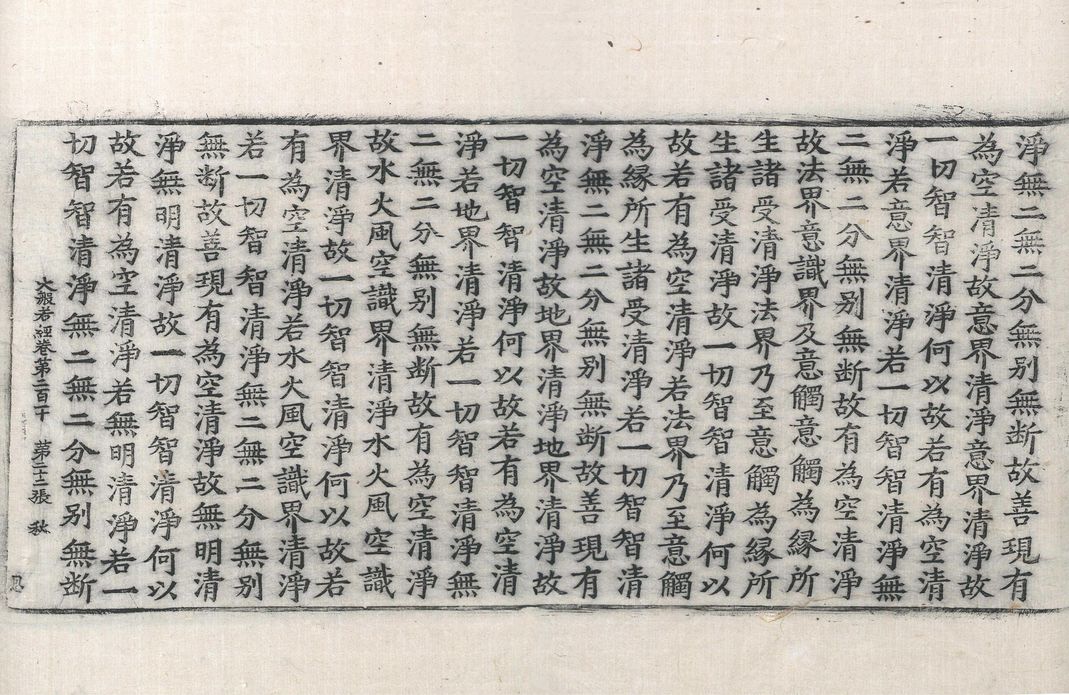 淨無二無二分無别無断故善現有
為空清淨故意界清淨意界清淨故
一切智智清淨何以故若有為空清
淨若意界清淨若一切智智清淨無
二無二分無别無断故有為空清淨
故法界意識界及意觸意觸為縁所
生諸受清淨法界乃至意觸為縁所
生諸受清淨故一切智智清淨何以
故若有為空清淨若法界乃至意觸
為縁所生諸受清淨若一切智智清
淨無二無二分無别無断故善現有
為空清淨故地界清淨地界清淨故
一切智智清淨何以故若有為空清
淨若地界清淨若一切智智清淨無
二無二分無别無断故有為空清淨
故水火風空識界清淨水火風空識
界清淨故一切智智清淨何以故若
有為空清淨若水火風空識界清淨
若一切智智清淨無二無二分無别
無断故善現有為空清淨故無明清
淨無明清淨故一切智智清淨何以
故若有為空清淨若無明清淨若一
切智智清淨無二無二分無别無断
大般若經卷第二百十 第二十二張 秋